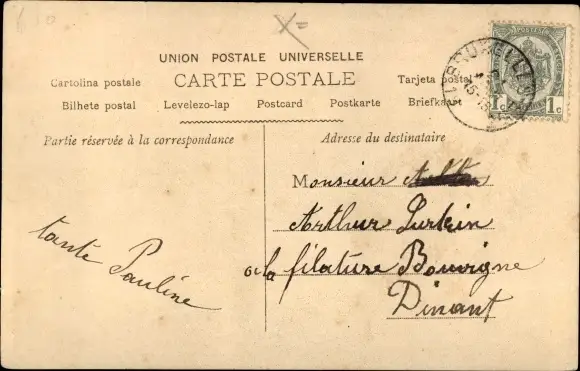 UNION POSTALE UNIVERSELLE
CARTE POSTALE
Cartolina postale
Tarjeta postal
Bilhete postal Levelezo-lap Postcard Postkarte Briefkaart
Partie réservée à la correspondance
Adresse du destinataire
Monsieur
Arthur
à la filature Bouvigne
Dinant
tante Pauline
BRUXELLES
1c 1c